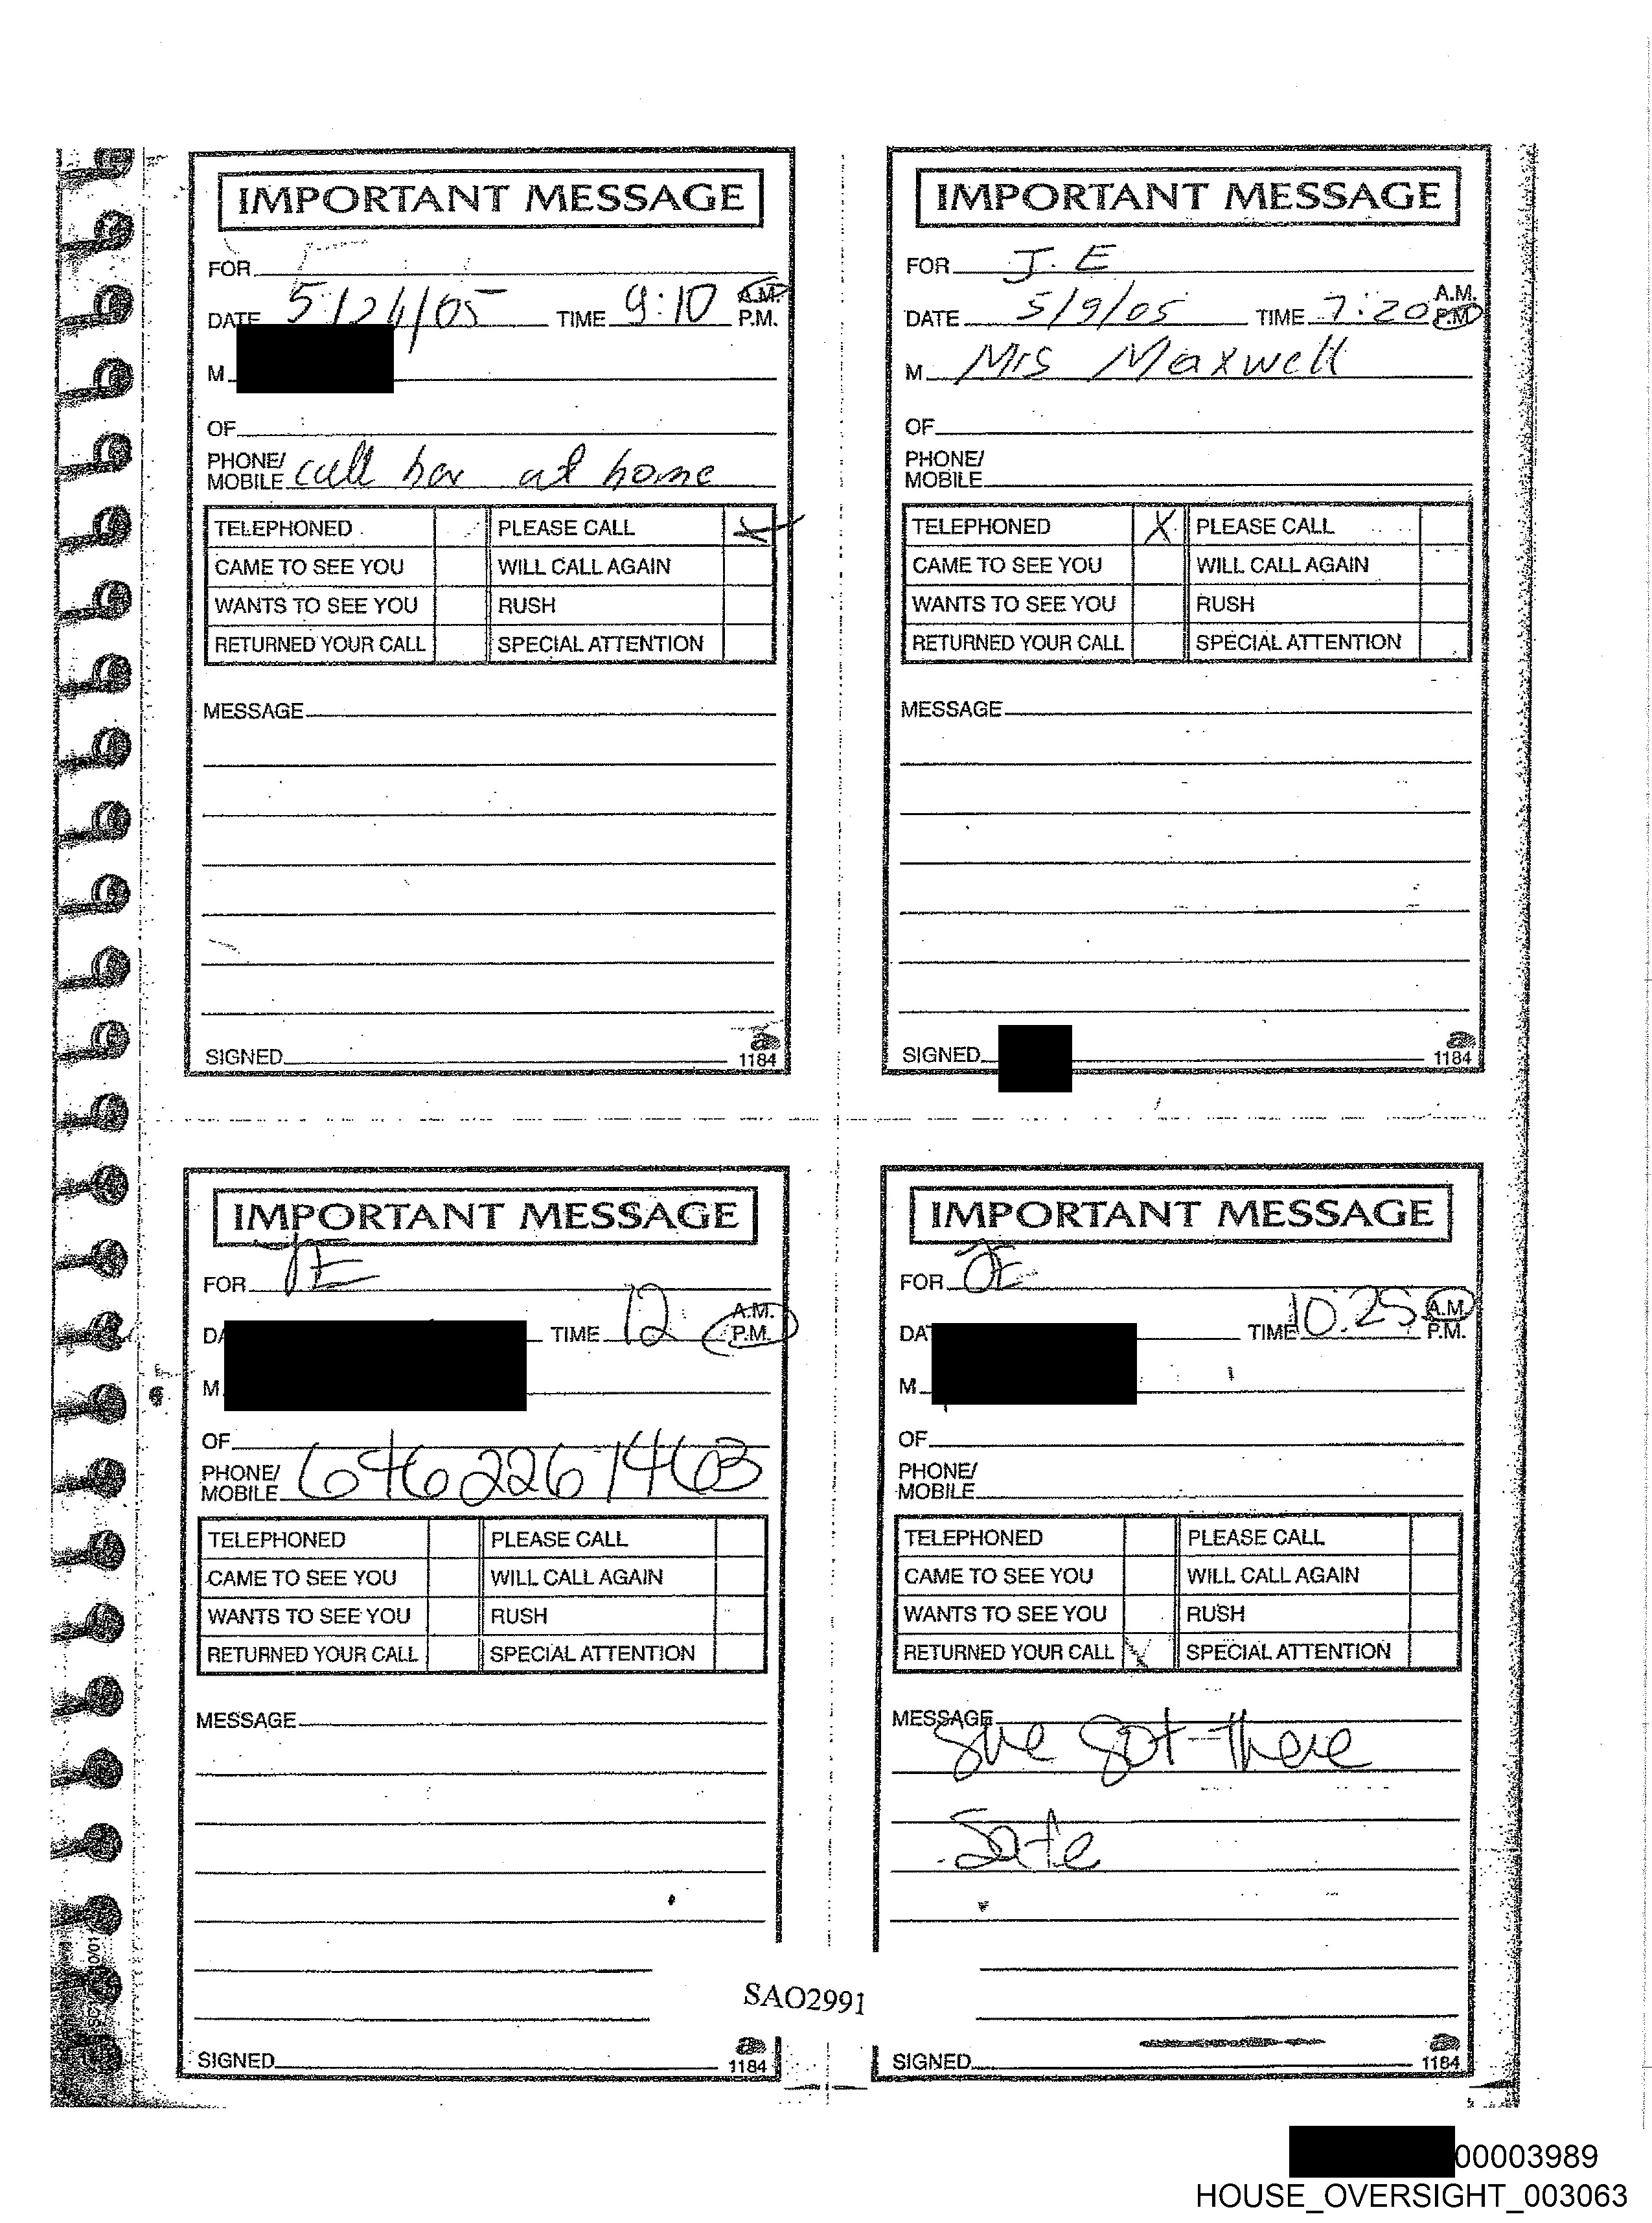 IMPORTANT MESSAGE
FOR
DATE 5/24/05 TIME 9:10 A.M. P.M.
M
OF
PHONE/ MOBILE call her at home
TELEPHONED PLEASE CALL X
CAME TO SEE YOU WILL CALL AGAIN
WANTS TO SEE YOU RUSH
RETURNED YOUR CALL SPECIAL ATTENTION
MESSAGE
SIGNED
1184
IMPORTANT MESSAGE
FOR J.E
DATE 5/9/05 TIME 7:20 A.M. P.M.
M Mrs Maxwell
OF
PHONE/ MOBILE
TELEPHONED X PLEASE CALL
CAME TO SEE YOU WILL CALL AGAIN
WANTS TO SEE YOU RUSH
RETURNED YOUR CALL SPECIAL ATTENTION
MESSAGE
SIGNED
1184
IMPORTANT MESSAGE
FOR JE
DA TIME 12 A.M. P.M.
M
OF
PHONE/ MOBILE 6462261463
TELEPHONED PLEASE CALL
CAME TO SEE YOU WILL CALL AGAIN
WANTS TO SEE YOU RUSH
RETURNED YOUR CALL SPECIAL ATTENTION
MESSAGE
SIGNED
1184
IMPORTANT MESSAGE
FOR JE
DAT TIME 10:25 A.M. P.M.
M
OF
PHONE/ MOBILE
TELEPHONED PLEASE CALL
CAME TO SEE YOU WILL CALL AGAIN
WANTS TO SEE YOU RUSH
RETURNED YOUR CALL X SPECIAL ATTENTION
MESSAGE
She got there
Safe
SIGNED
1184
SAO2991
00003989
HOUSE_OVERSIGHT_003063